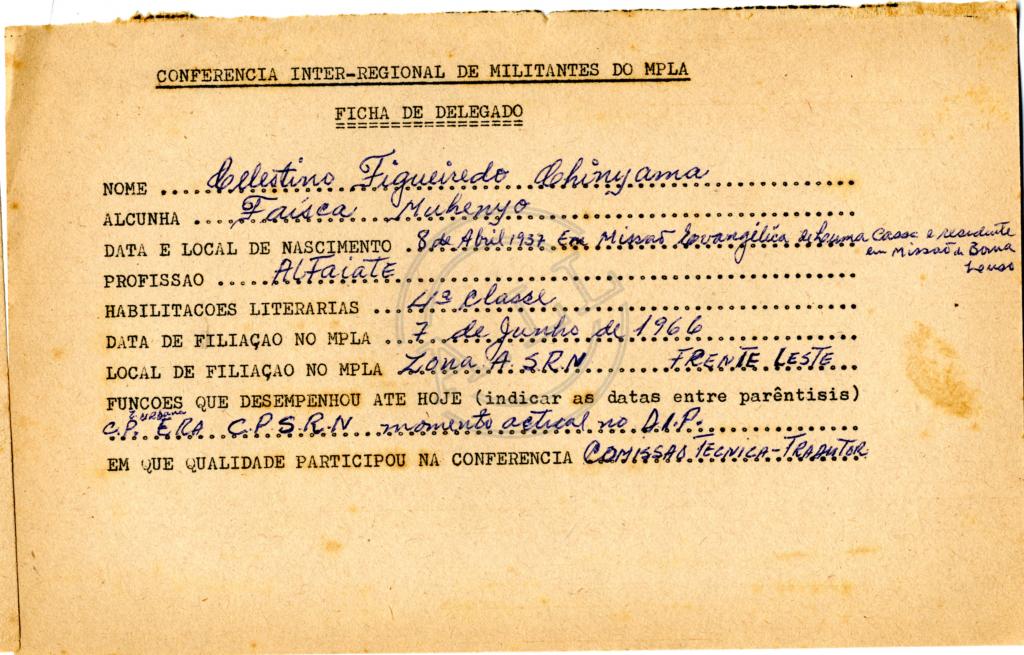 CONFERENCIA INTER-REGIONAL DE MILITANTES DO MPLA
FICHA DE DELEGADO
NOME .... Celestino Figueiredo Chinyama
ALCUNHA .... Faísca Muhenyo
DATA E LOCAL DE NASCIMENTO . 8 de Abril 1937 Em Missaõ Evangélica Casse e residente
em Missaõ de Boma
PROFISSAO .... Alfaiate
HABILITACOES LITERARIAS ... 4ª Classe
DATA DE FILIAÇAO NO MPLA .. 7 de Junho de 1966
LOCAL DE FILIAÇAO NO MPLA Zona A S.R.N FRENTE LESTE
FUNCOES QUE DESEMPENHOU ATE HOJE (indicar as datas entre parêntisis)
C.P. ERA C.P.S.R.N momento actual no D.I.P.
EM QUE QUALIDADE PARTICIPOU NA CONFERENCIA COMISSAO TECNICA - TRADUTOR